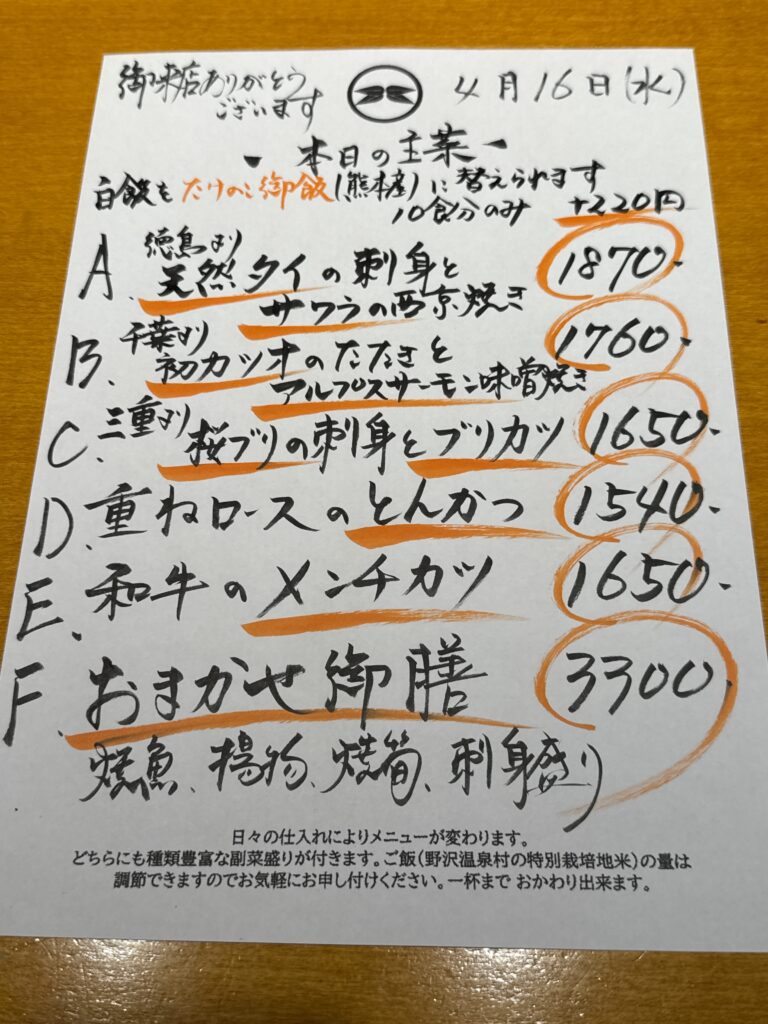 御来店ありがとう
ございます
4月16日(水)
本日の主菜
白飯をたけのこ御飯(熊本産)に替えられます
10食分のみ +220円
A. 徳島より
天然タイの刺身と
サワラの西京焼き 1870-
B. 千葉より
初カツオのたたきと
アルプスサーモン味噌焼き 1760-
C. 三重より
桜ブリの刺身とブリカツ 1650-
D. 重ねロースのとんかつ 1540-
E. 和牛のメンチカツ 1650-
F. おまかせ御膳 3300-
焼魚、揚物、焼筍、刺身盛り
日々の仕入れによりメニューが変わります。
どちらにも種類豊富な副菜盛りが付きます。ご飯(野沢温泉村の特別栽培地米)の量は
調節できますのでお気軽にお申し付けください。一杯まで おかわり出来ます。